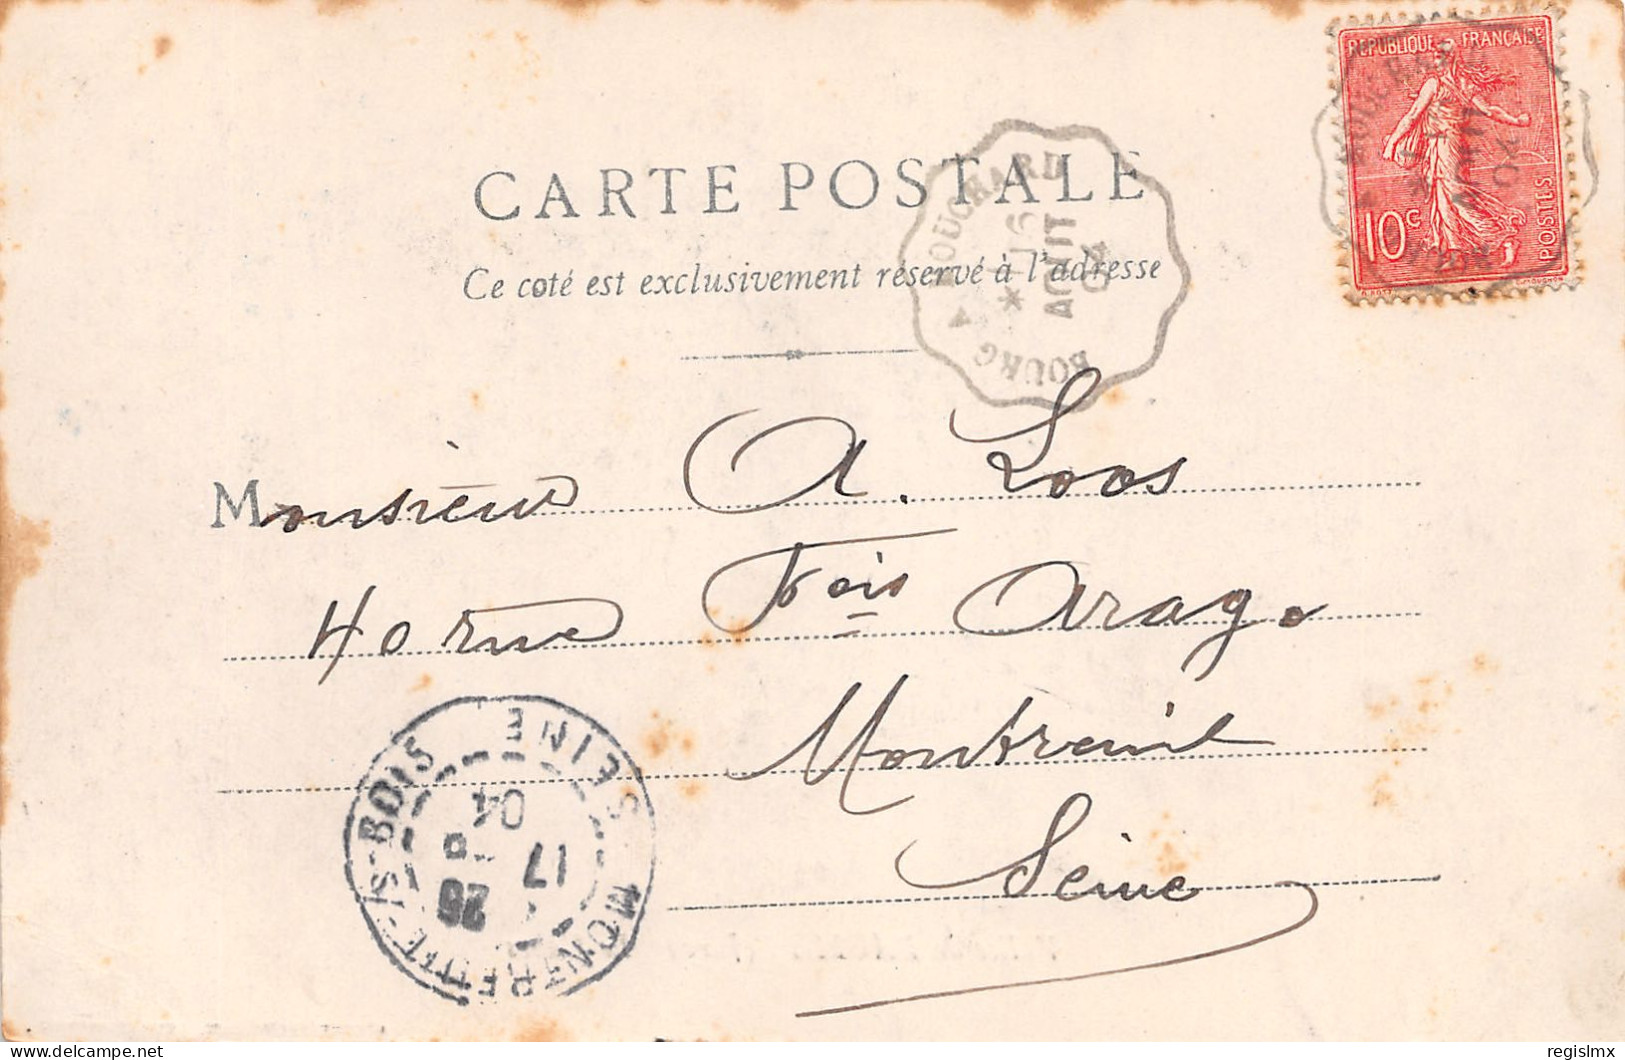 REPUBLIQUE FRANÇAISE
10c
POSTES
CARTE POSTALE
Ce coté est exclusivement réservé à l'adresse
BOUCHARD
16
AOUT
04
BOURG
Monsieur A. Loos
40 rue Fois Arago
Montreuil
Seine
MONTREUIL-S-BOIS SEINE
17
04
regislmx